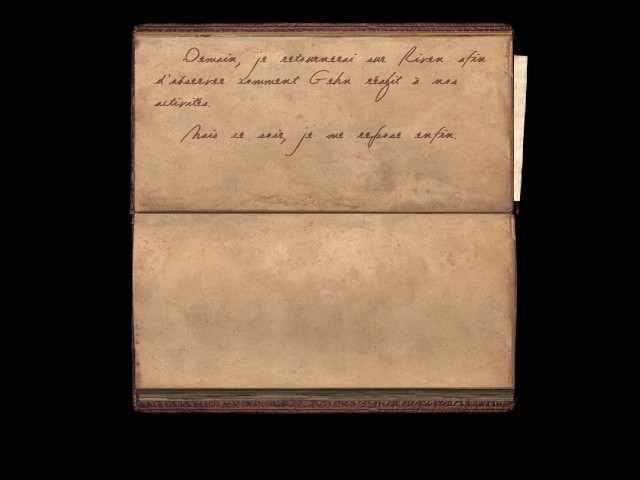 Demain, je retournerai sur Riven afin
d'observer comment Gehn réagit à nos
activités.
Mais ce soir, je me repose enfin.